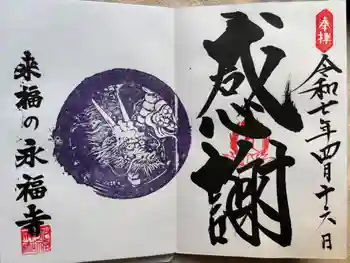 奉拝
令和七年四月十六日
感謝
来福の永福寺